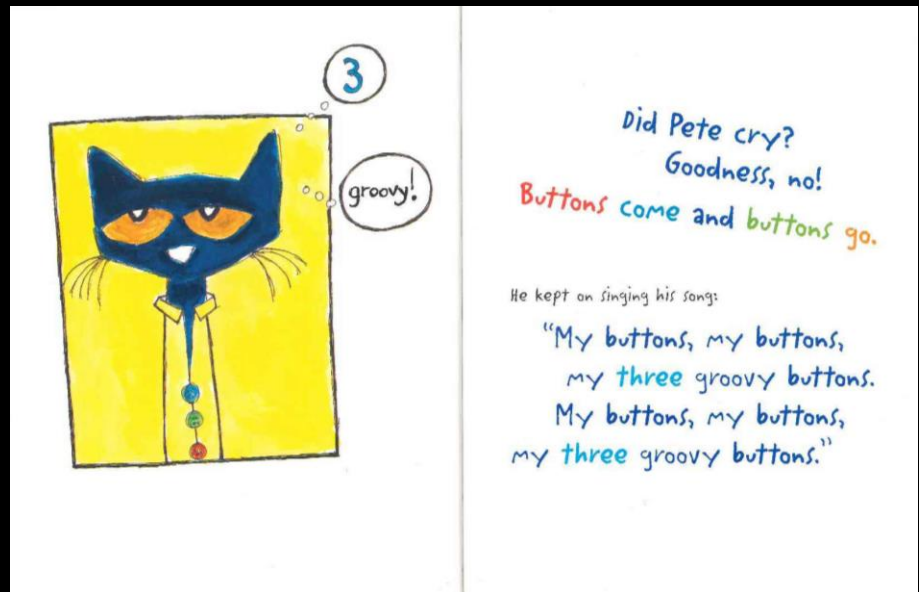 3
groovy!
Did Pete cry?
Goodness, no!
Buttons come and buttons go.
He kept on singing his song:
"My buttons, my buttons,
my three groovy buttons.
My buttons, my buttons,
my three groovy buttons."